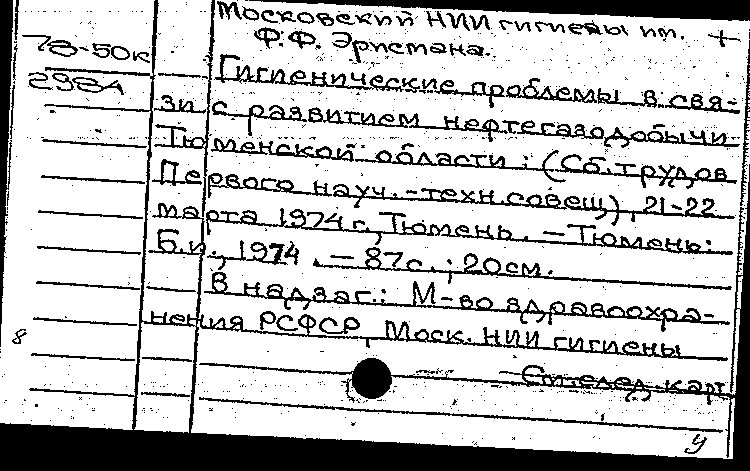 Московский НИИ гигиены им. +
Ф.Ф. Эрисмана.
78-50к
298А
Гигиенические проблемы в свя-
зи с развитием нефтегазодобычи
Тюменской области: (Сб. трудов
Первого науч.-техн. совещ), 21-22
марта 1974 г., Тюмень. — Тюмень:
Б.и., 1974. — 87с.; 20см.
В надзаг.: М-во здравоохра-
нения РСФСР, Моск. НИИ гигиены
8
См. след. карт
У